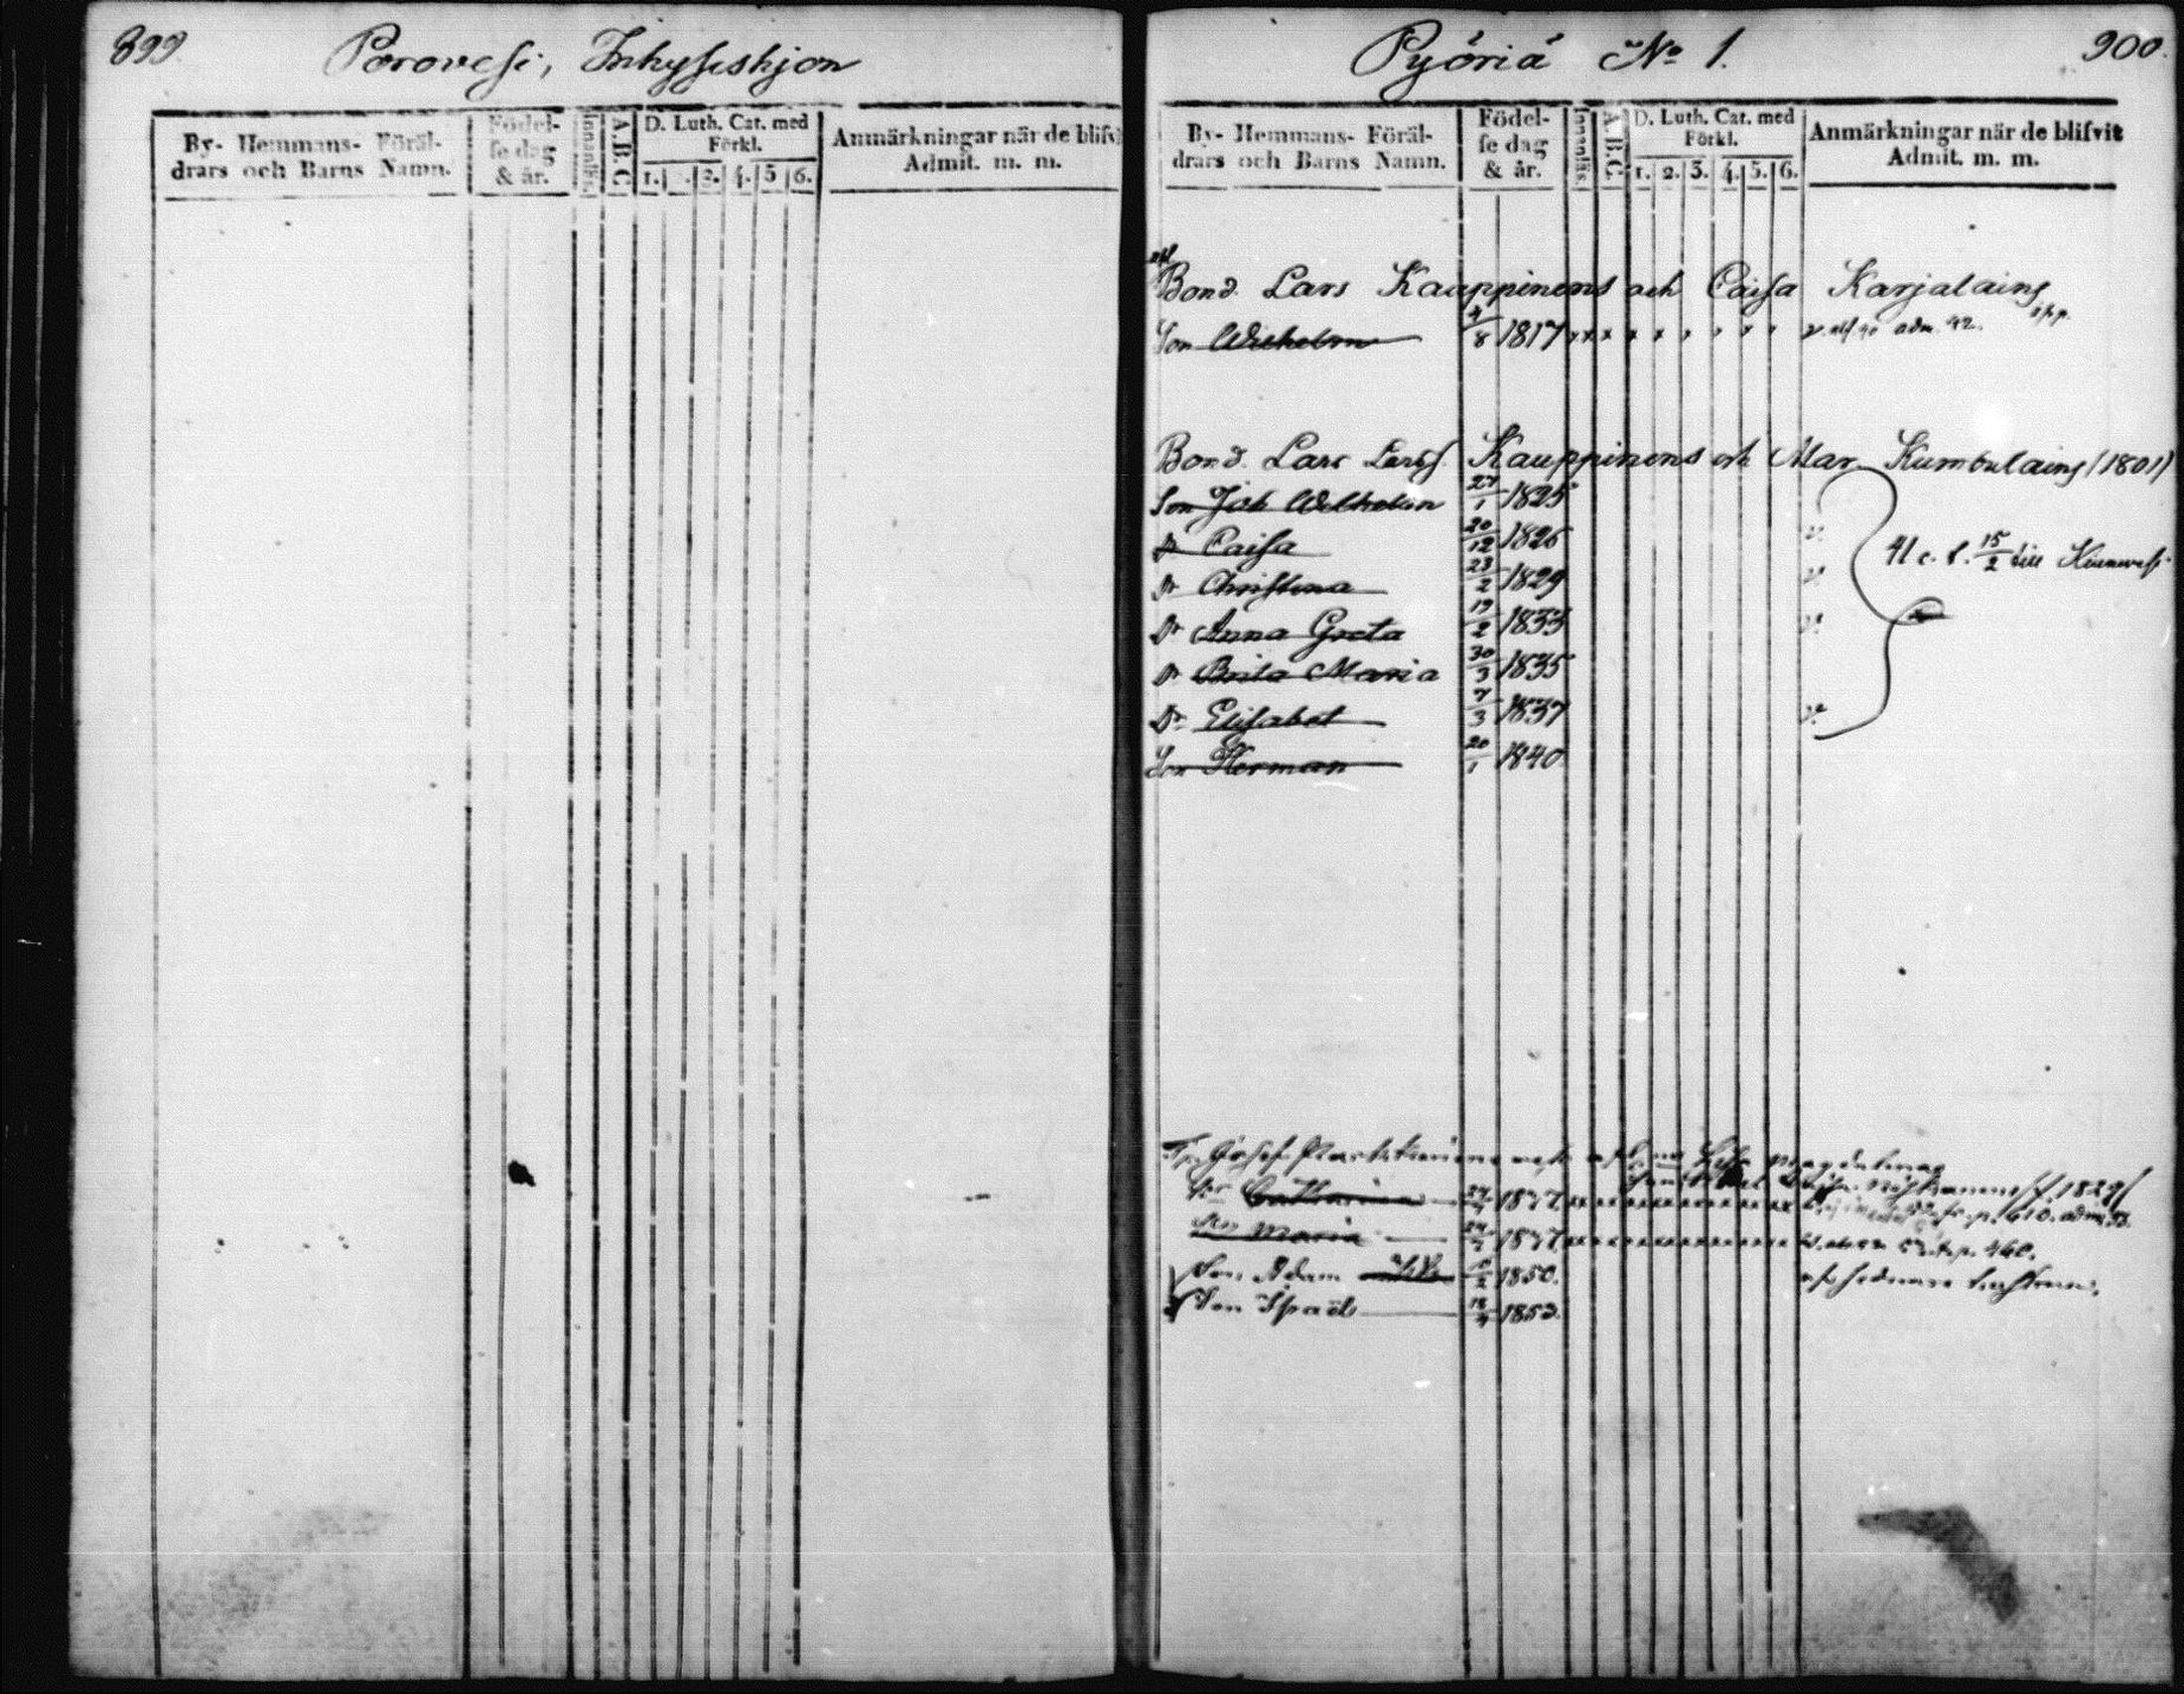 899.
Porovesi, Inhyseshjon
By- Hemmans- Föräl-
drars och Barns Namn.
Födel-
se dag
& år.
Innanläs.
A.B.C
D. Luth. Cat. med
Förkl.
1. 3. 4. 5 6.
Anmärkningar när de blifvi
Admit. m. m.
Pyöriä No 1.
900.
By- Hemmans- Föräl-
drars och Barns Namn.
Födel-
se dag
& år.
Innanläs.
A.B.C.
D. Luth. Cat. med
Förkl.
1. 2. 3. 4. 5. 6.
Anmärkningar när de blifvit
Admit. m. m.
Bond. Lars Kauppinens och Caisa Karjalains
Son Wilhelm 4/8 1817 x x x x x adm. 42.
Bond. Lars Larss. Kauppinens och Mar. Kumbulains (1801)
Son Joh Wilhelm 27/1 1825
Dr Caisa 20/12 1826
Dr Christina 23/2 1829
41 c. t. 15/2 till
Dr Anna Greta 19/2 1833
Dr Brita Maria 30/3 1835
Dr Elisabet 7/3 1837
Son Herman 20/1 1840
Josef
1829
Catharina 1837 p. 610.
Maria 1837 p. 460.
Son Adam 10/2 1850.
Son Israël 1852.